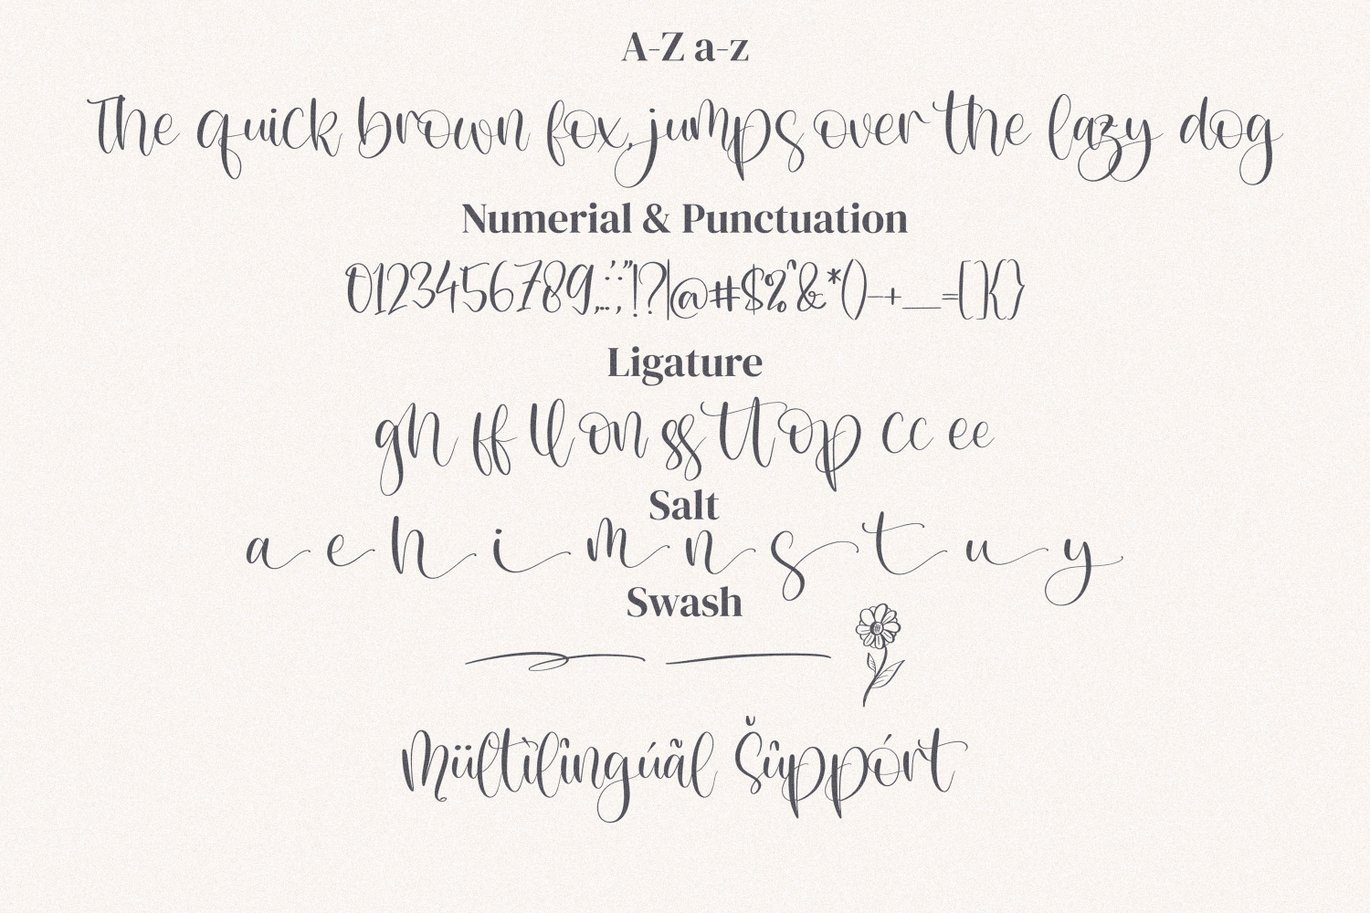 A-Z a-z
The quick brown fox, jumps over the lazy dog
Numerial & Punctuation
0123456789,..:;'"!?|@#$%^&*()-+__={}{}
Ligature
gh ff ll on ss tt op cc ee
Salt
a e h i m n s t u y
Swash
Mültìlîngúãl Šûppórt